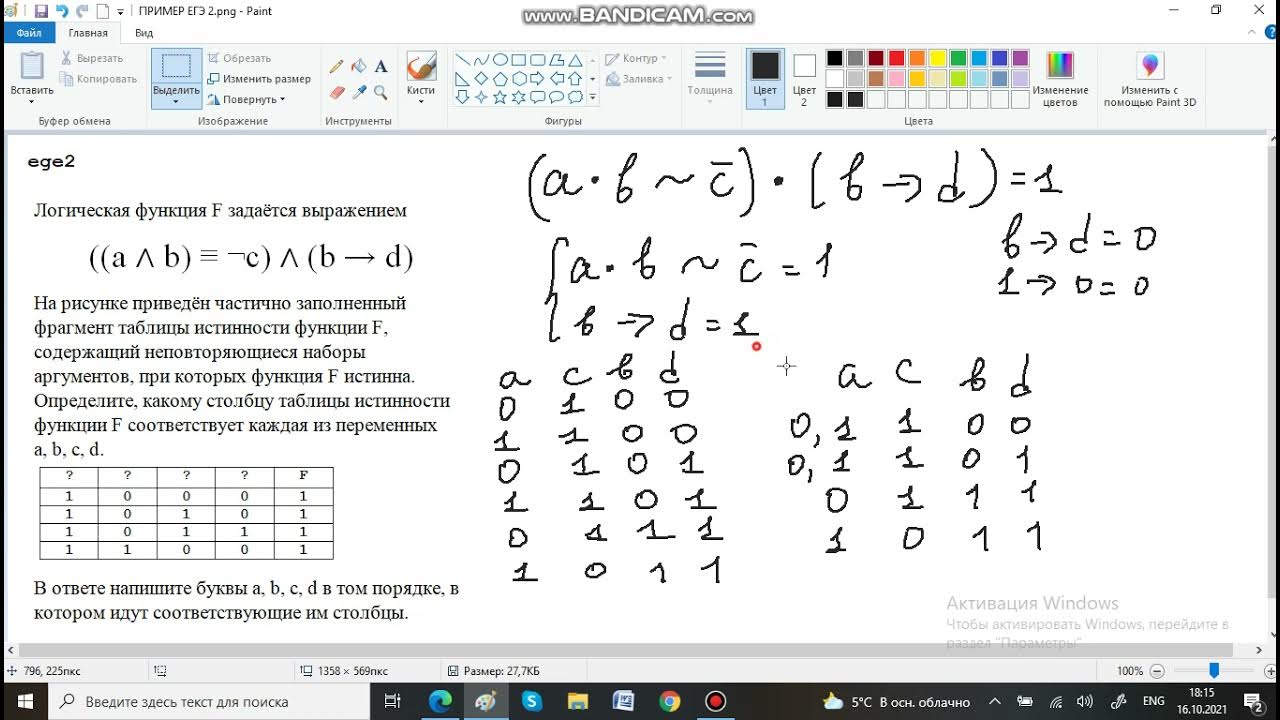 ПРИМЕР ЕГЭ 2.png - Paint
www.BANDICAM.com
Файл Главная Вид
Вставить
Вырезать
Копировать
Буфер обмена
Выделить
Обрезать
Изменить размер
Повернуть
Изображение
Инструменты
Кисти
Контур
Заливка
Фигуры
Толщина
Цвет 1
Цвет 2
Цвета
Изменение цветов
Изменить с помощью Paint 3D
ege2
Логическая функция F задаётся выражением
((a ∧ b) ≡ ¬c) ∧ (b → d)
На рисунке приведён частично заполненный
фрагмент таблицы истинности функции F,
содержащий неповторяющиеся наборы
аргументов, при которых функция F истинна.
Определите, какому столбцу таблицы истинности
функции F соответствует каждая из переменных
a, b, c, d.
? ? ? ? F
1 0 0 0 1
1 0 1 0 1
1 0 1 1 1
1 1 0 0 1
В ответе напишите буквы a, b, c, d в том порядке, в
котором идут соответствующие им столбцы.
(a · b ~ c̄) · (b → d) = 1
a · b ~ c̄ = 1
b → d = 1
b → d = 0
1 → 0 = 0
a c b d
0 1 0 0
1 1 0 0
0 1 0 1
1 1 0 1
0 1 1 1
1 0 1 1
a c b d
0,1 1 0 0
0,1 1 0 1
0 1 1 1
1 0 1 1
Активация Windows
Чтобы активировать Windows, перейдите в
раздел "Параметры"
796, 225пкс
1358 × 569пкс
Размер: 27,7КБ
100%
Введите здесь текст для поиска
5°C В осн. облачно
ENG
18:15
16.10.2021
2